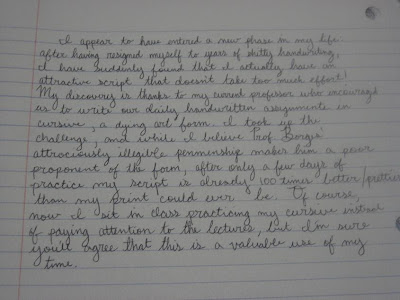 I appear to have entered a new phase in my life:
after having resigned myself to years of shitty handwriting,
I have suddenly found that I actually have an
attractive script that doesn't take too much effort!
My discovery is thanks to my current professor who encouraged
us to write our daily handwritten assignments in
cursive, a dying art form. I took up the
challenge, and while I believe Prof. Borges'
attrociously illegible penmenship makes him a poor
proponent of the form, after only a few days of
practice my script is already 100 times better/prettier
than my print could ever be. Of course,
now I sit in class practicing my cursive instead
of paying attention to the lectures, but I'm sure
you'll agree that this is a valuable use of my
time.